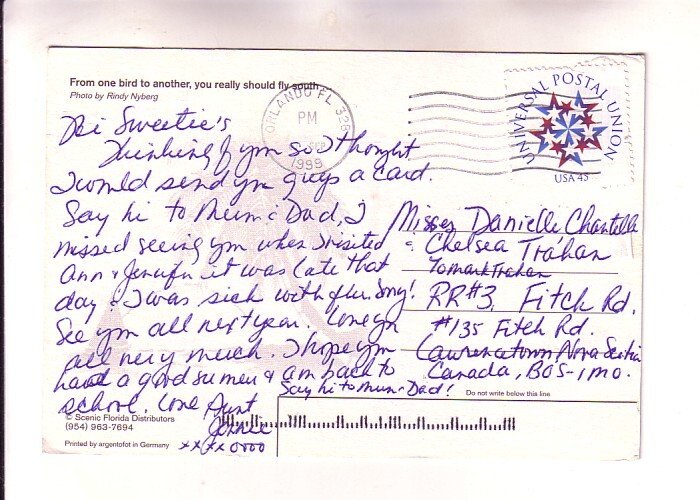 From one bird to another, you really should fly south
Photo by Rindy Nyberg
ORLANDO FL 328
PM
1999
UNIVERSAL POSTAL UNION
USA 45
Hi Sweetie's
Thinking of you so I thought
I would send you guys a card.
Say hi to Mum & Dad, I
missed seeing you when I visited
Ann & Jenifer it was late that
day & I was sick with flu. Sorry!
See you all next year. Love you
all very much. I hope you
have a good sumer & am back to
school. Love Aunt
xxxx oooo
Misses Danielle Chantelle
& Chelsea Trahan
To Mark Trahan
RR#3, Fitch Rd.
#135 Fitch Rd.
Lawrencetown Nova Scotia
Canada, BOS-1MO.
Say hi to Mum & Dad!
Do not write below this line
© Scenic Florida Distributors
(954) 963-7694
Printed by argentofot in Germany